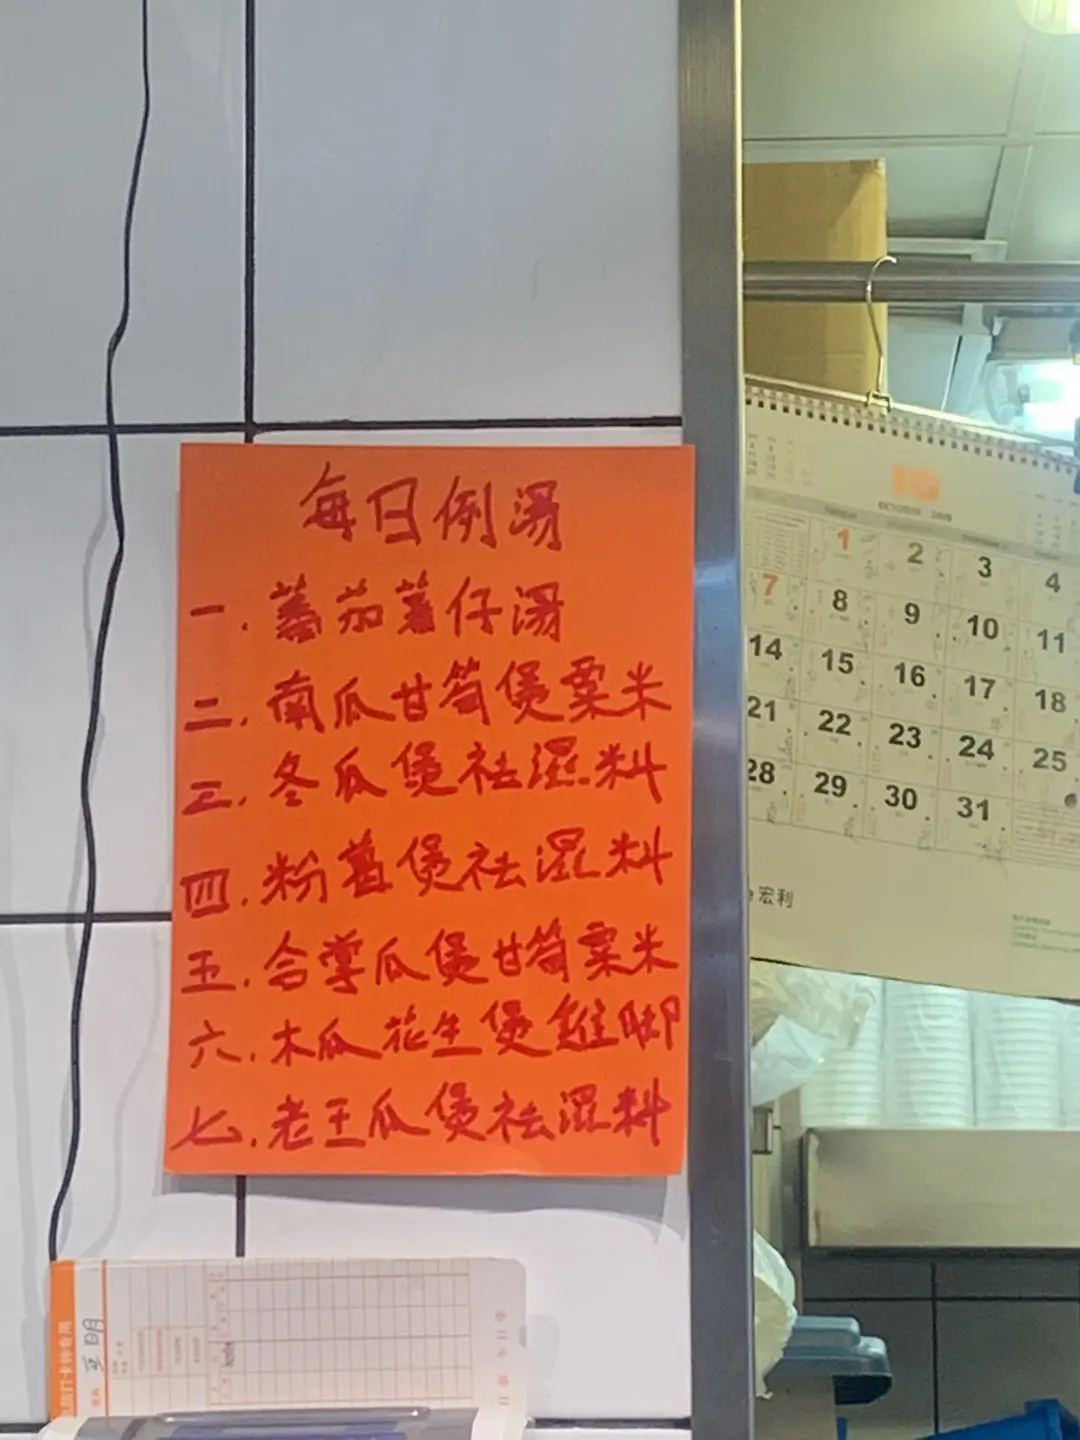 每日例湯
一.蕃茄薯仔湯
二.南瓜甘筍煲粟米
三.冬瓜煲祛濕料
四.粉葛煲祛濕料
五.合掌瓜煲甘筍粟米
六.木瓜花生煲雞脚
七.老王瓜煲祛濕料
10
1 2 3 4
7 8 9 10 11
14 15 16 17 18
21 22 23 24 25
28 29 30 31
宏利